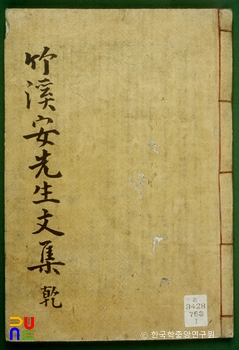 竹溪安先生文集 乾
3428
768
1
© 한국학중앙연구원